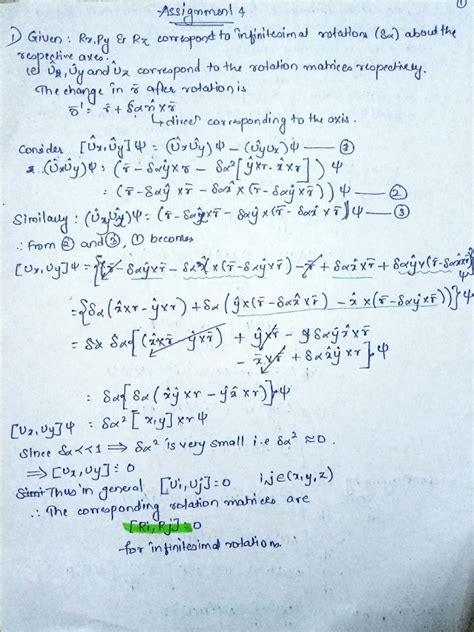 ①
Assignment 4
1) Given: Rx, Py & Rz correspond to infinitesimal rotations (δα) about the
respective axes.
let Ûx, Ûy and Ûz correspond to the rotation matrices respectively.
The change in r̄ after rotation is
r̄' = r̄ + δα n̂ × r̄
↳ direcⁿ corresponding to the axis.
Consider [Ûx, Ûy]ψ = (ÛxÛy)ψ − (ÛyUx)ψ — ①
(ÛxÛy)ψ = (r̄ − δαŷ×r − δα²[ŷ×r. x̂×r])ψ
= (r̄ − δαŷ×r̄ − δαx̂×(r̄ − δαŷ×r̄))ψ — ②
Similarly: (ÛxÛy)ψ = (r̄ − δαx̂×r̄ − δαŷ×(r̄ − δαx̂×r̄))ψ — ③
∴ From ② and ③, ① becomes
[Ux, Uy]ψ = {r̄ − δαŷ×r̄ − δαx̂×(r̄ − δαŷ×r̄) − r̄ + δαx̂×r̄ + δαŷ×(r̄ − δαx̂×r̄)}ψ
= {δα(x̂×r − ŷ×r) + δα(ŷ×(r̄ − δαx̂×r̄) − x̂×(r̄ − δαŷ×r̄))}ψ
= δα[(x̂×r̄ − ŷ×r̄) + ŷ×r̄ − δαŷx̂×r̄
− x̄×r̄ + δαx̂ŷ×r]ψ
= δα{δα(x̂ŷ×r − ŷx̂×r)}ψ
[Ux, Uy]ψ = δα²[x,y]×rψ
Since δα<<1 ⇒ δα² is very small i.e δα² ≈ 0.
⇒ [Ux, Uy] = 0
Thus in general [Ui, Uj] = 0 i,j∈(x,y,z)
∴ The corresponding rotation matrices are
[Ri, Rj] = 0
for infinitesimal rotations.